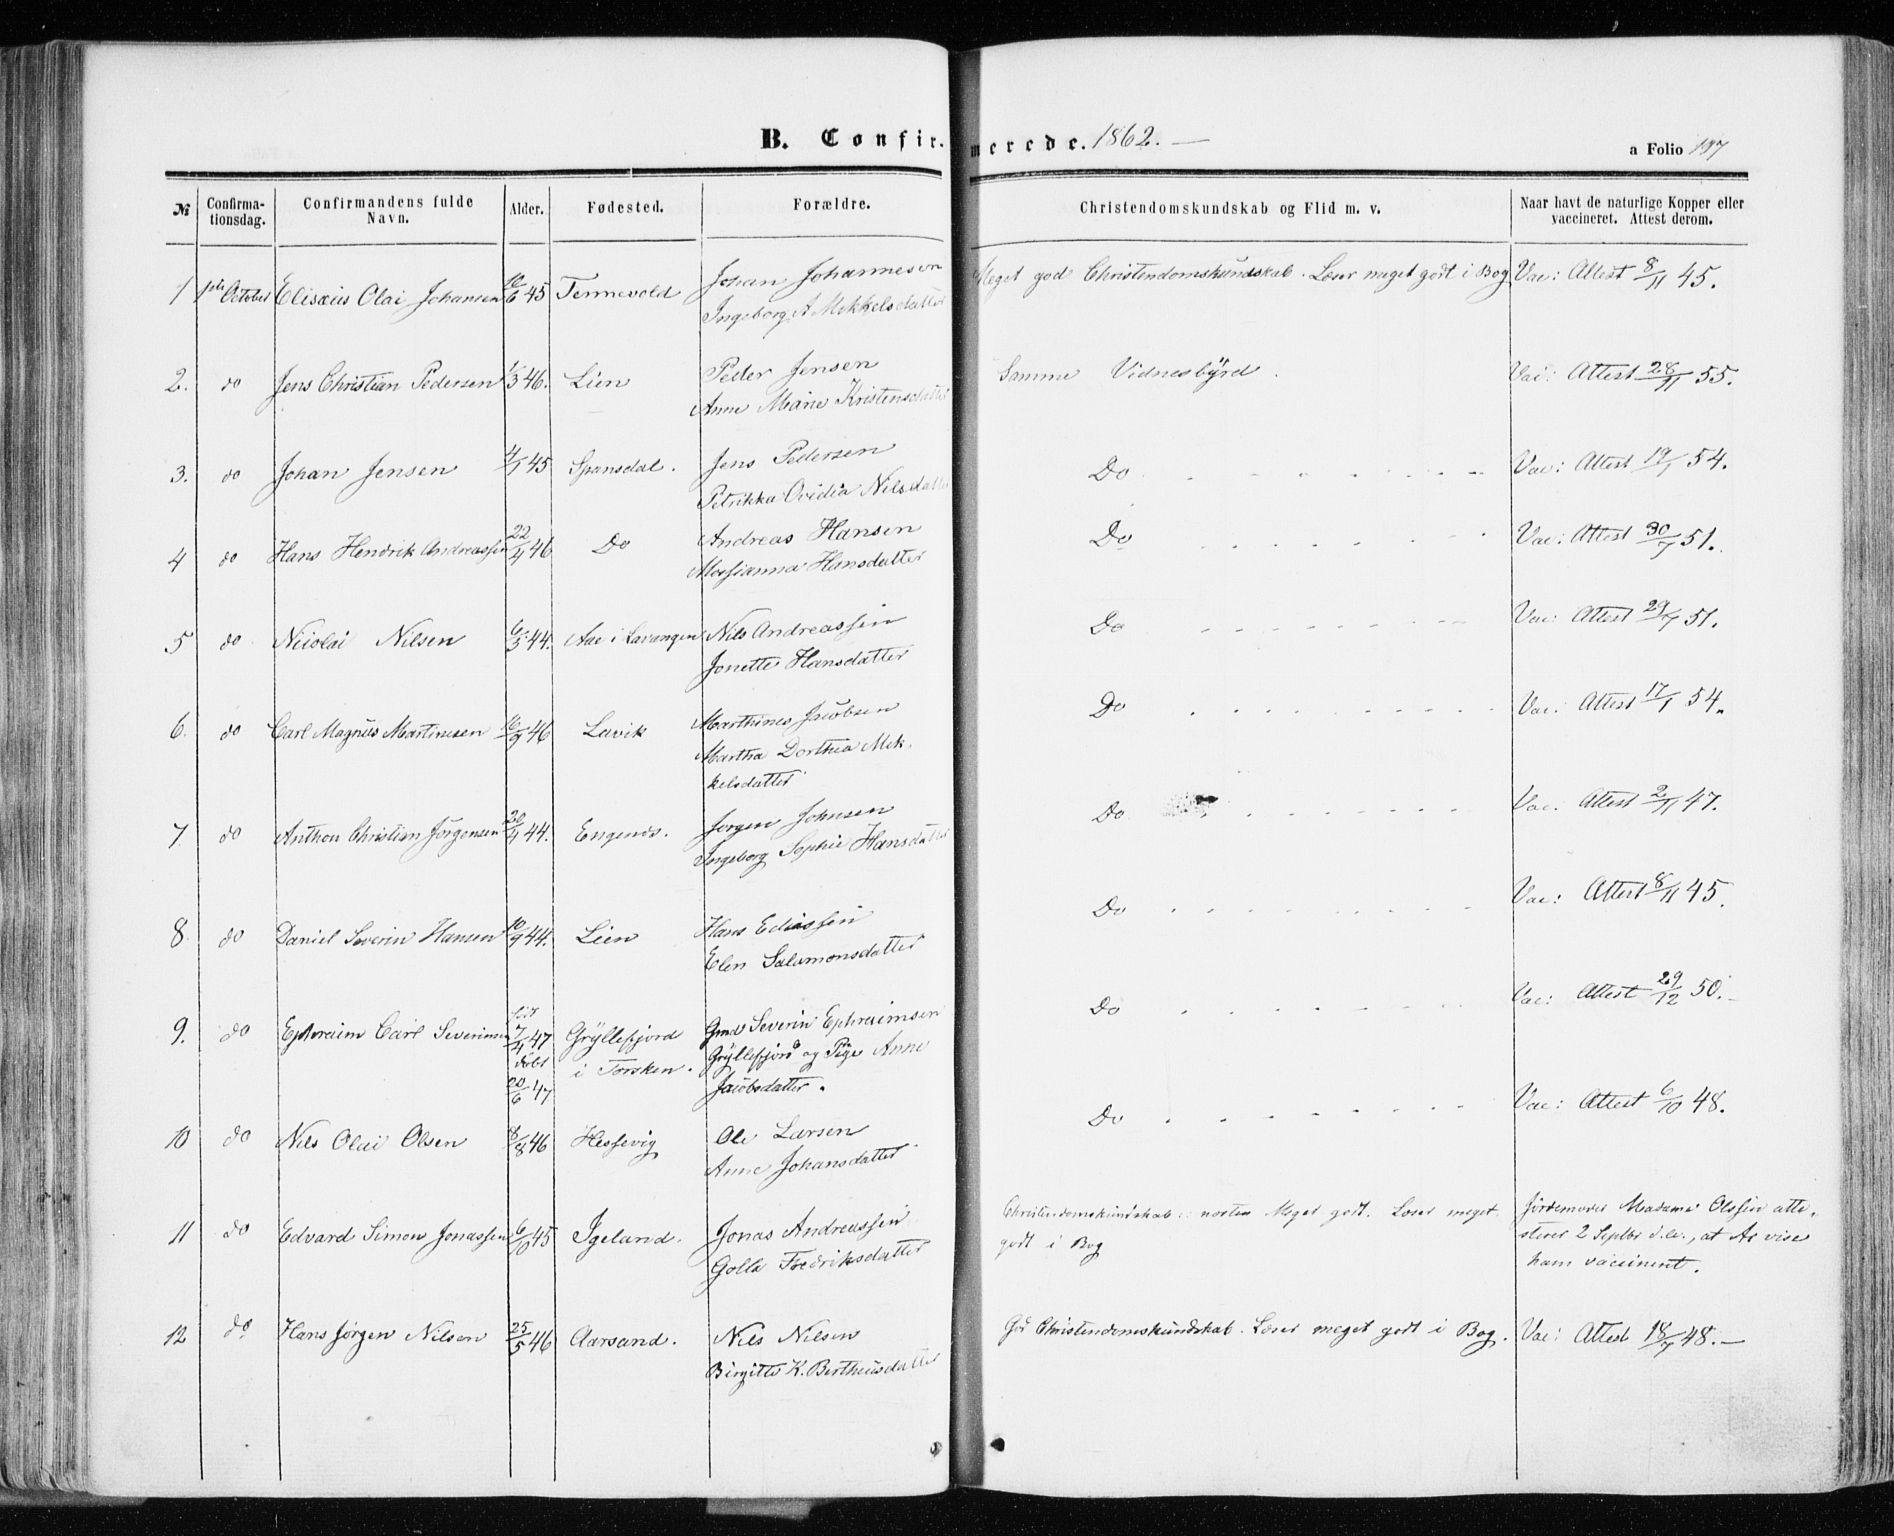 B. Confirmerede. 1862. —
a Folio 197
№ Confirmationsdag. Confirmandens fulde Navn. Alder. Fødested. Forældre. Christendomskundskab og Flid m. v. Naar havt de naturlige Kopper eller vaccineret. Attest derom.
1 October Elisæus Olai Johansen 10/6 45 Tennevold Johan Johannesen Meget god Christendomskundskab. Læser meget godt i Bog Vac: Attest 8/11 45.
Ingeborg A Mikkelsdatter
2. do Jens Christian Pedersen 1/3 46. Lien Peder Jensen Samme Vidnesbyrd. Vac: Attest 28/11 55.
Anne Marie Kristensdatter
3. do Johan Jensen 4/1 45 Spansdal. Jens Pedersen Do Vac: Attest 19/1 54.
Petrikka Ovidia Nilsdatter
4 do Hans Hendrik Andreassen 22/4 46 Do Andreas Hansen Do Vac: Attest 30/7 51.
Massianna Hansdatter
5 do Nicolai Nilsen 6/3 44. Aae i Lavangen Nils Andreassen Do Vac: Attest 29/7 51.
Jonette Hansdatter
6. do Carl Magnus Martinusen 16/9 46 Lavik Marthines Jacobsen Do Vac: Attest 17/1 54.
Martha Dorthea Mik-
kelsdatter
7. do Anthon Christian Jørgensen 20/4 44. Engenes. Jørgen Johnsen Do Vac. Attest 2/11 47.
Ingeborg Sophie Hansdatter
8 do Daniel Severin Hansen 10/9 44. Lien Hans Eliassen Do Vac: Attest 8/11 45.
Elen Salamonsdatter
9. do Ephraim Carl Severinsen født 7/4 47 døbt 20/6 47 Gryllefjord i Torsken. Gmd Severin Ephraimsen Do Vac: Attest 29/12 50.
Gryllefjord og Pige Anne
Jacobsdatter.
10 do Nils Olai Olsen 8/8 46 Hessevig Ole Larsen Do Vac: Attest 6/10 48.
Anne Johansdatter
11 do Edvard Simon Jonassen 6/10 45 Igeland. Jonas Andreassen Christendomskundskab: næsten Meget godt. Læser meget Jordemoder Madame Olssen atte-
Golla Fredriksdatter godt i Bog sterer 2 Septbr d.A., at Ar vise
ham vaccineret.
12 do Hans Jørgen Nilsen 25/5 46 Aarsand. Nils Nilsen God Christendomskundskab. Læser meget godt i Bog. Vac: Attest 18/7 48. —
Birgitte K. Bertheusdatter